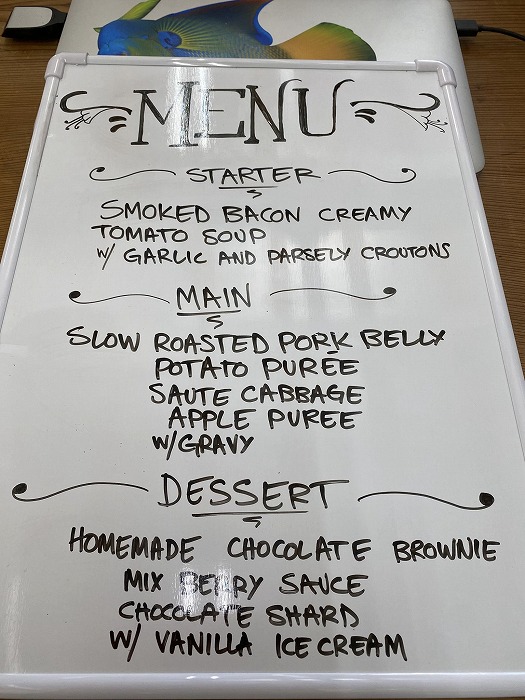 MENU
STARTER
SMOKED BACON CREAMY
TOMATO SOUP
W/ GARLIC AND PARSELY CROUTONS
MAIN
SLOW ROASTED PORK BELLY
POTATO PURÉE
SAUTE CABBAGE
APPLE PUREE
W/GRAVY
DESSERT
HOMEMADE CHOCOLATE BROWNIE
MIX BERRY SAUCE
CHOCOLATE SHARD
W/ VANILLA ICE CREAM